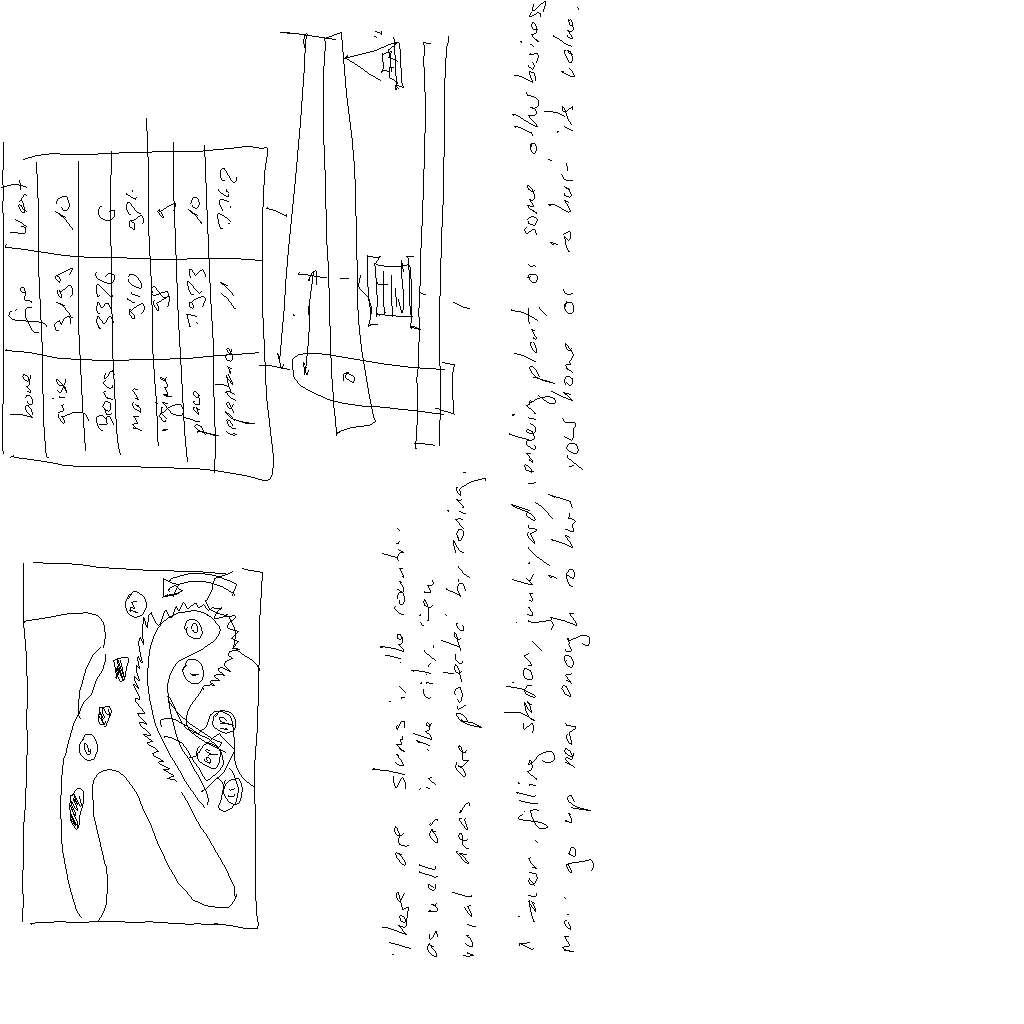 bone fire West
guise 3,199 10
Bores 3376 6
man 910 97.
regime 98 9
place 7.973 10
repentance 11 7.762
There are slums in the country.
as well as in the city. Few
rural areas are protected by zoning.
A tavern, filling station, junk-yard, rendering plant, or some other business
may go up near enough to hurt your home or to hurt its value.